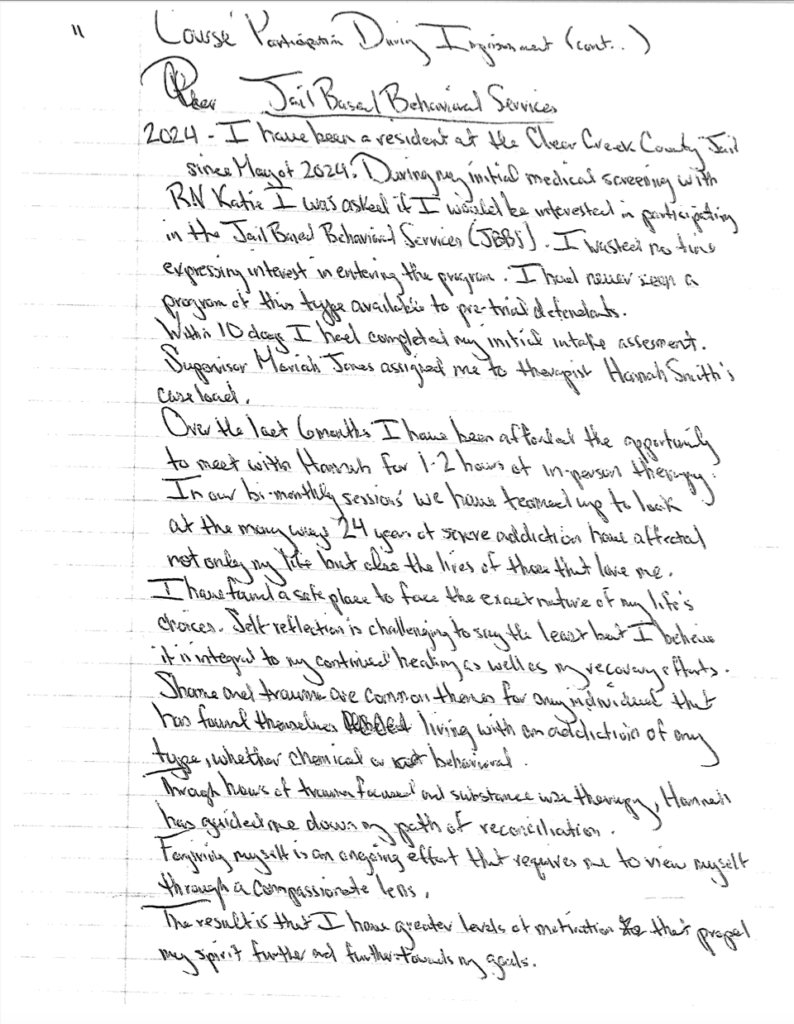 "
Course Participation During Imprisonment (cont..)
Jail Based Behavioral Services
2024 - I have been a resident at the Clear Creek County Jail
since May of 2024. During my initial medical screening with
RN Katie I was asked if I would be interested in participating
in the Jail Based Behavioral Services (JBBS). I wasted no time
expressing interest in entering the program. I had never seen a
program of this type available to pre-trial defendants.
Within 10 days I had completed my initial intake assesment.
Supervisor Moriah Jones assigned me to therapist Hannah Smith's
case load.
Over the last 6 months I have been afforded the opportunity
to meet with Hannah for 1-2 hours of in-person therapy.
In our bi-monthly sessions we have teamed up to look
at the many ways 24 years of severe addiction have affected
not only my life but also the lives of those that love me.
I have found a safe place to face the exact nature of my life's
choices. Self reflection is challenging to say the least but I believe
it is integral to my continued healing as well as my recovery efforts.
Shame and trauma are common themes for any individual that
has found themselves living with an addiction of any
type, whether chemical or behavioral.
Through hours of trauma focused and substance use therapy, Hannah
has guided me down my path of reconciliation.
Forgiving myself is an ongoing effort that requires me to view myself
through a compassionate lens.
The result is that I have greater levels of motivation that propel
my spirit further and further towards my goals.